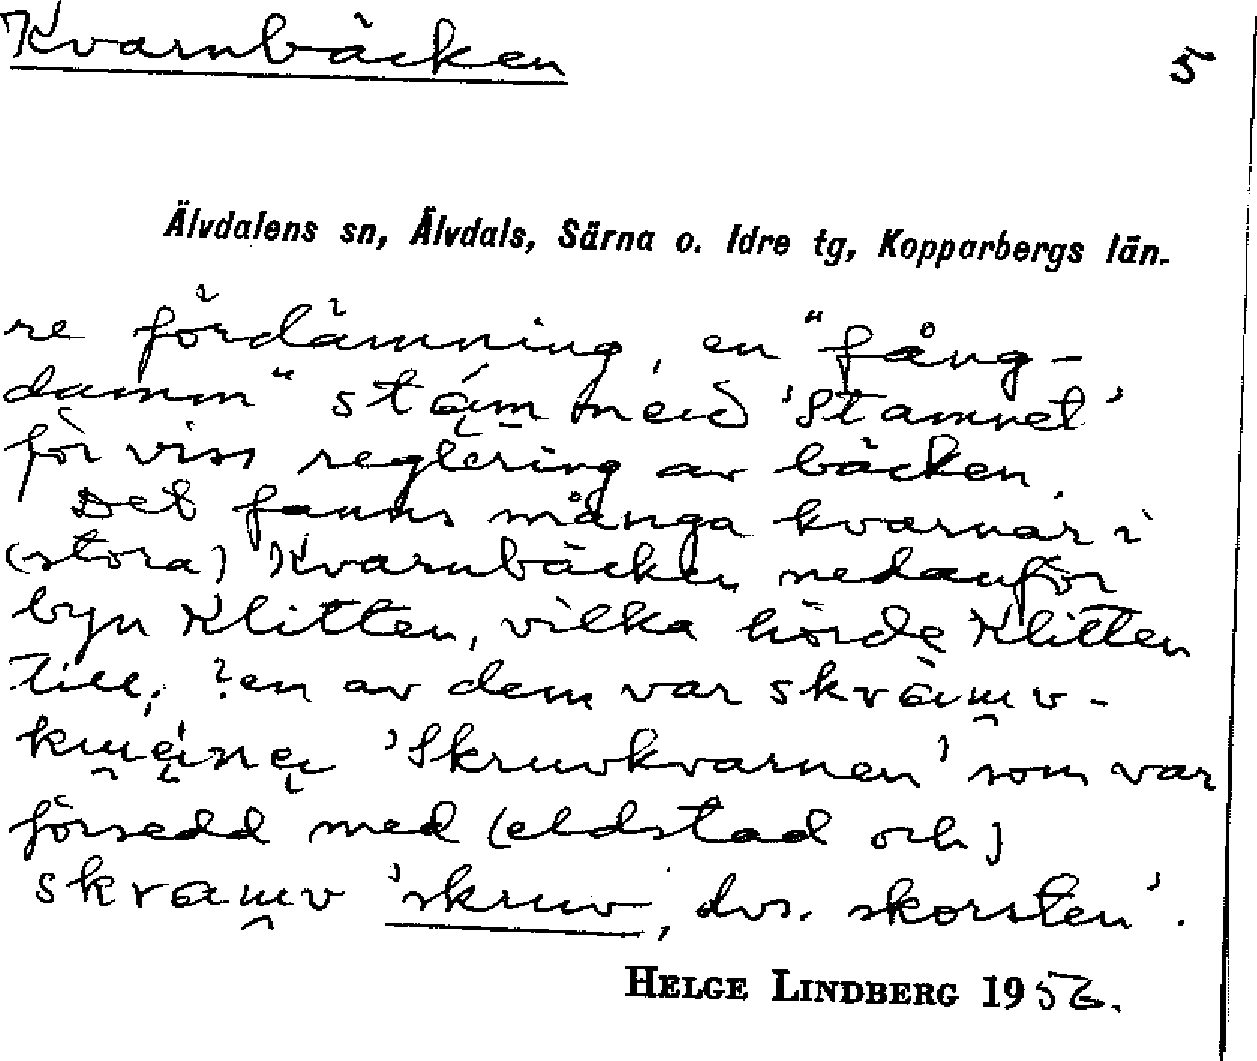 Kvarnbäcken 5
Älvdalens sn, Älvdals, Särna o. Idre tg, Kopparbergs län.
re fördämning, en "fång-
damm" med 'Stamnet'
för viss reglering av bäcken.
Det fanns många kvarnar i
(stora) Kvarnbäcken nedanför
byn Klitten, vilka hörde Klitten
till; en av dem var
'Skruvkvarnen' som var
försedd med (eldstad och)
'skruv, dvs. skorsten'.
HELGE LINDBERG 1956.